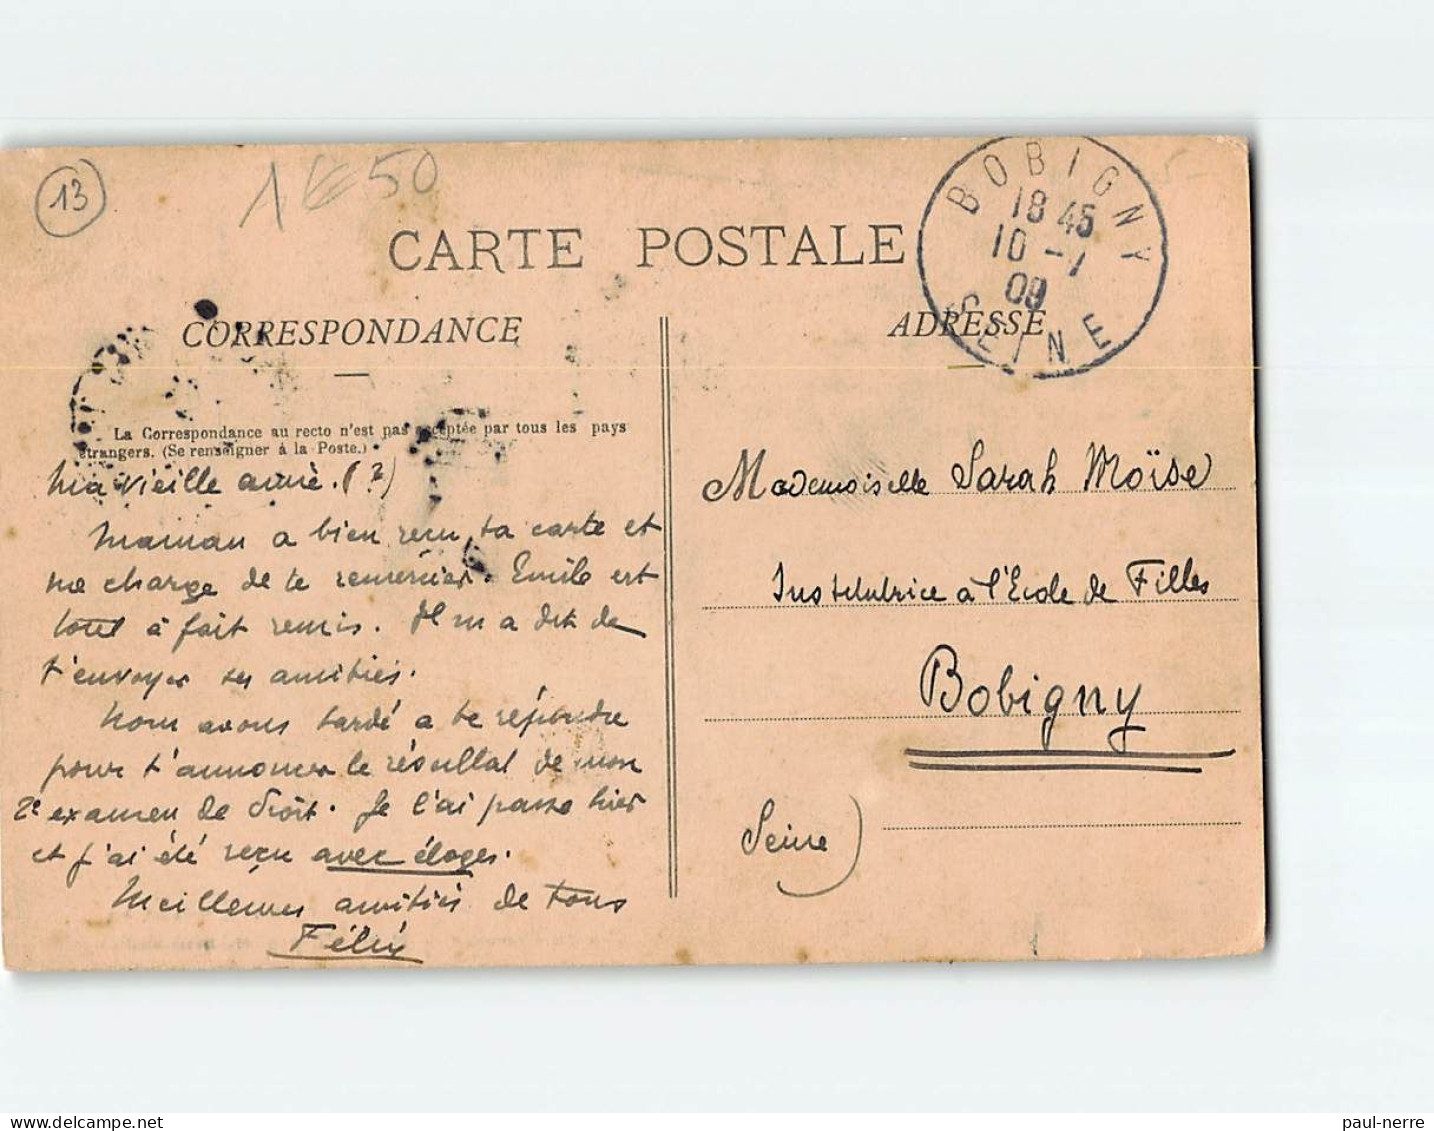 13
1€50
CARTE POSTALE
BOBIGNY
18 45
10 -7
09
SEINE
CORRESPONDANCE
ADRESSE
La Correspondance au recto n'est pas acceptée par tous les pays
étrangers. (Se renseigner à la Poste.)
Ma vieille amie. (?)
Maman a bien reçu ta carte et
me charge de te remercier. Emile est
tout à fait remis. Il m'a dit de
t'envoyer ses amitiés.
Nous avons tardé a te répondre
pour t'annoncer le résultat de mon
2e examen de droit. Je l'ai passé hier
et j'ai été reçu avec éloges.
Meilleures amitiés de tous
Félix
Mademoiselle Sarah Moïse
Institutrice à l'Ecole de Filles
Bobigny
(Seine)
paul-nerre